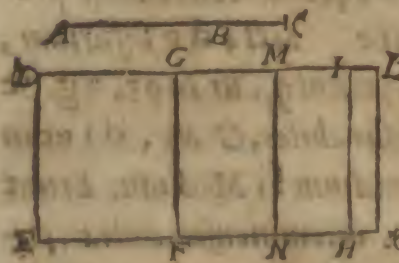 A B C
D G M I L
E F N H K